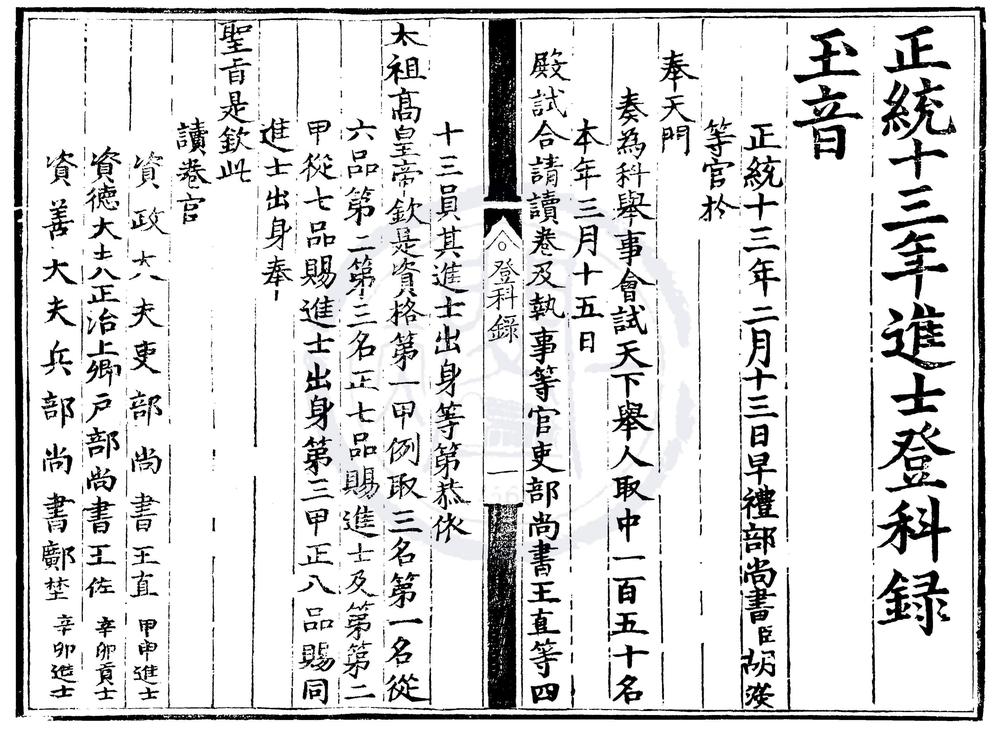 正統十三年進士登科録
玉音
正統十三年二月十三日早禮部尚書臣胡濙
等官於
奉天門
奏為科舉事會試天下舉人取中一百五十名
本年三月十五日
殿試合請讀卷及執事等官吏部尚書王直等四
登科録
一
十三員其進士出身等第恭依
太祖高皇帝欽定資格第一甲例取三名第一名從
六品第二第三名正七品賜進士及第第二
甲從七品賜進士出身第三甲正八品賜同
進士出身奉
聖旨是欽此
讀卷官
資政大夫吏部尚書王直 甲申進士
資德大夫正治上卿戶部尚書王佐 辛卯貢士
資善大夫兵部尚書鄺埜 辛卯進士